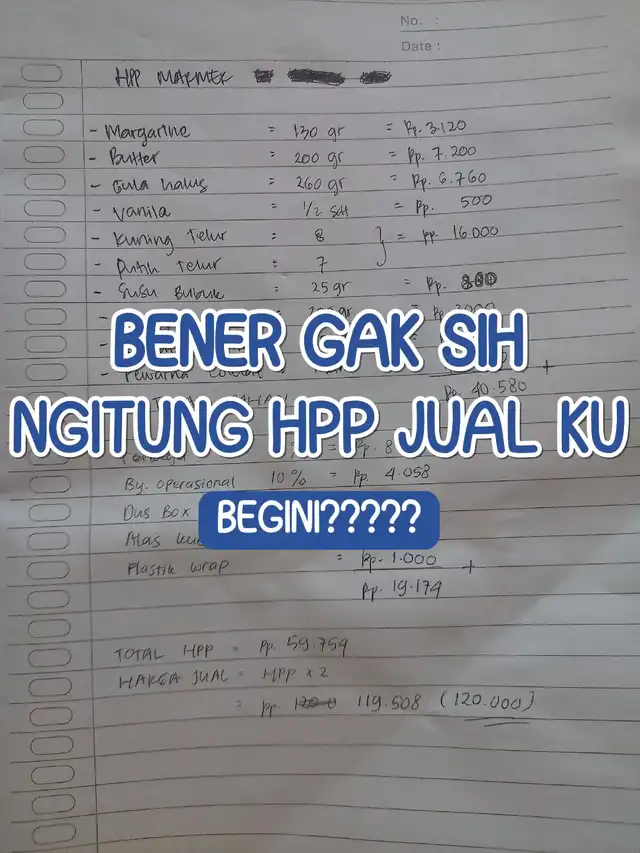 No. :
Date :
HPP MARMER
- Margarine = 130 gr = Rp. 3.120
- Butter = 200 gr = Rp. 7.200
- Gula halus = 260 gr = Rp. 6.760
- Vanila = 1/2 sdt = Rp. 500
- Kuning Telur : 8 } = Rp. 16.000
- Putih Telur : 7
- Susu Bubuk : 25 gr = Rp.
BENER GAK SIH
Rp. 40.580
NGITUNG HPP JUAL KU
By. Operasional 10 % = Rp. 4.058
Dus Box
BEGINI?????
Alas
Plastik wrap = Rp. 1.000 +
Rp. 19.179
TOTAL HPP = Rp. 59.759
HARGA JUAL = HPP x 2
= Rp. 119.508 (120.000)